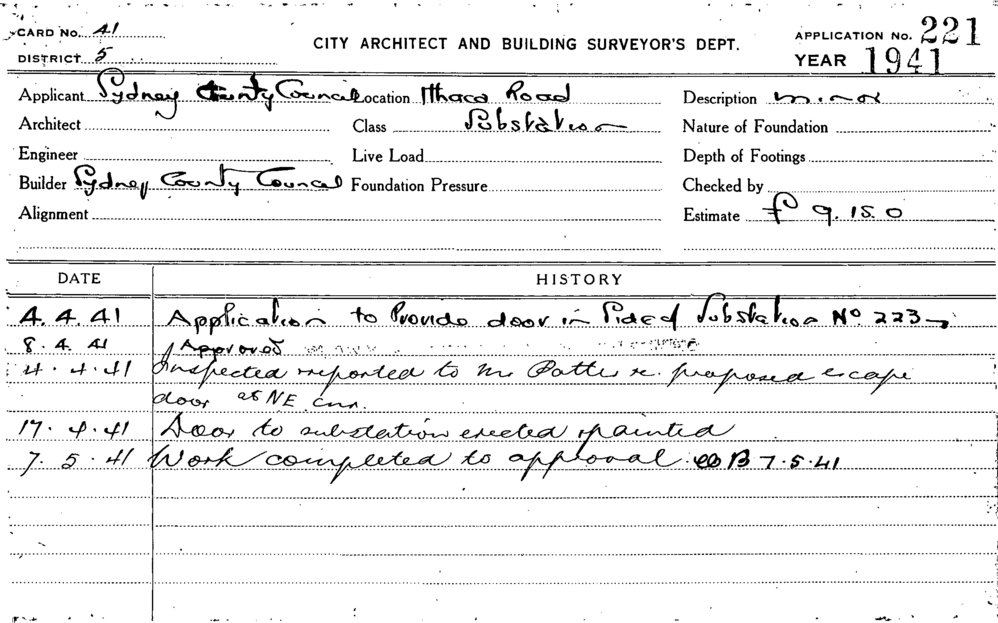 CARD No. 41
DISTRICT 5
CITY ARCHITECT AND BUILDING SURVEYOR'S DEPT.
APPLICATION No. 221
YEAR 1941
Applicant Sydney County Council Location Ithaca Road Description minor
Architect Class Substation Nature of Foundation
Engineer Live Load Depth of Footings
Builder Sydney County Council Foundation Pressure Checked by
Alignment Estimate £ 9. 15. 0
DATE HISTORY
4. 4. 41 Application to Provide door in Side of Substation No 223
8. 4. 41 Approved
4. 4. 41 Inspected & reported to Mr re. proposed escape
door at NE. cnr.
17. 4. 41 Door to substation erected & painted
7. 5. 41 Work completed to approval. B 7.5.41